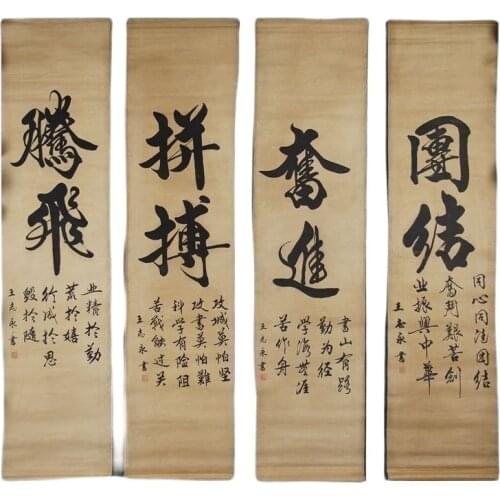 團结
同心同德團结
奮鬥艱苦創
业振興中華
王志永書
奮進
書山有路
勤为径
学海無涯
苦作舟
王志永書
拼搏
攻城莫怕坚
攻書莫怕難
科学有险阻
苦戰能过关
王志永書
騰飛
业精於勤
荒於嬉
行成於思
毀於随
王志永書